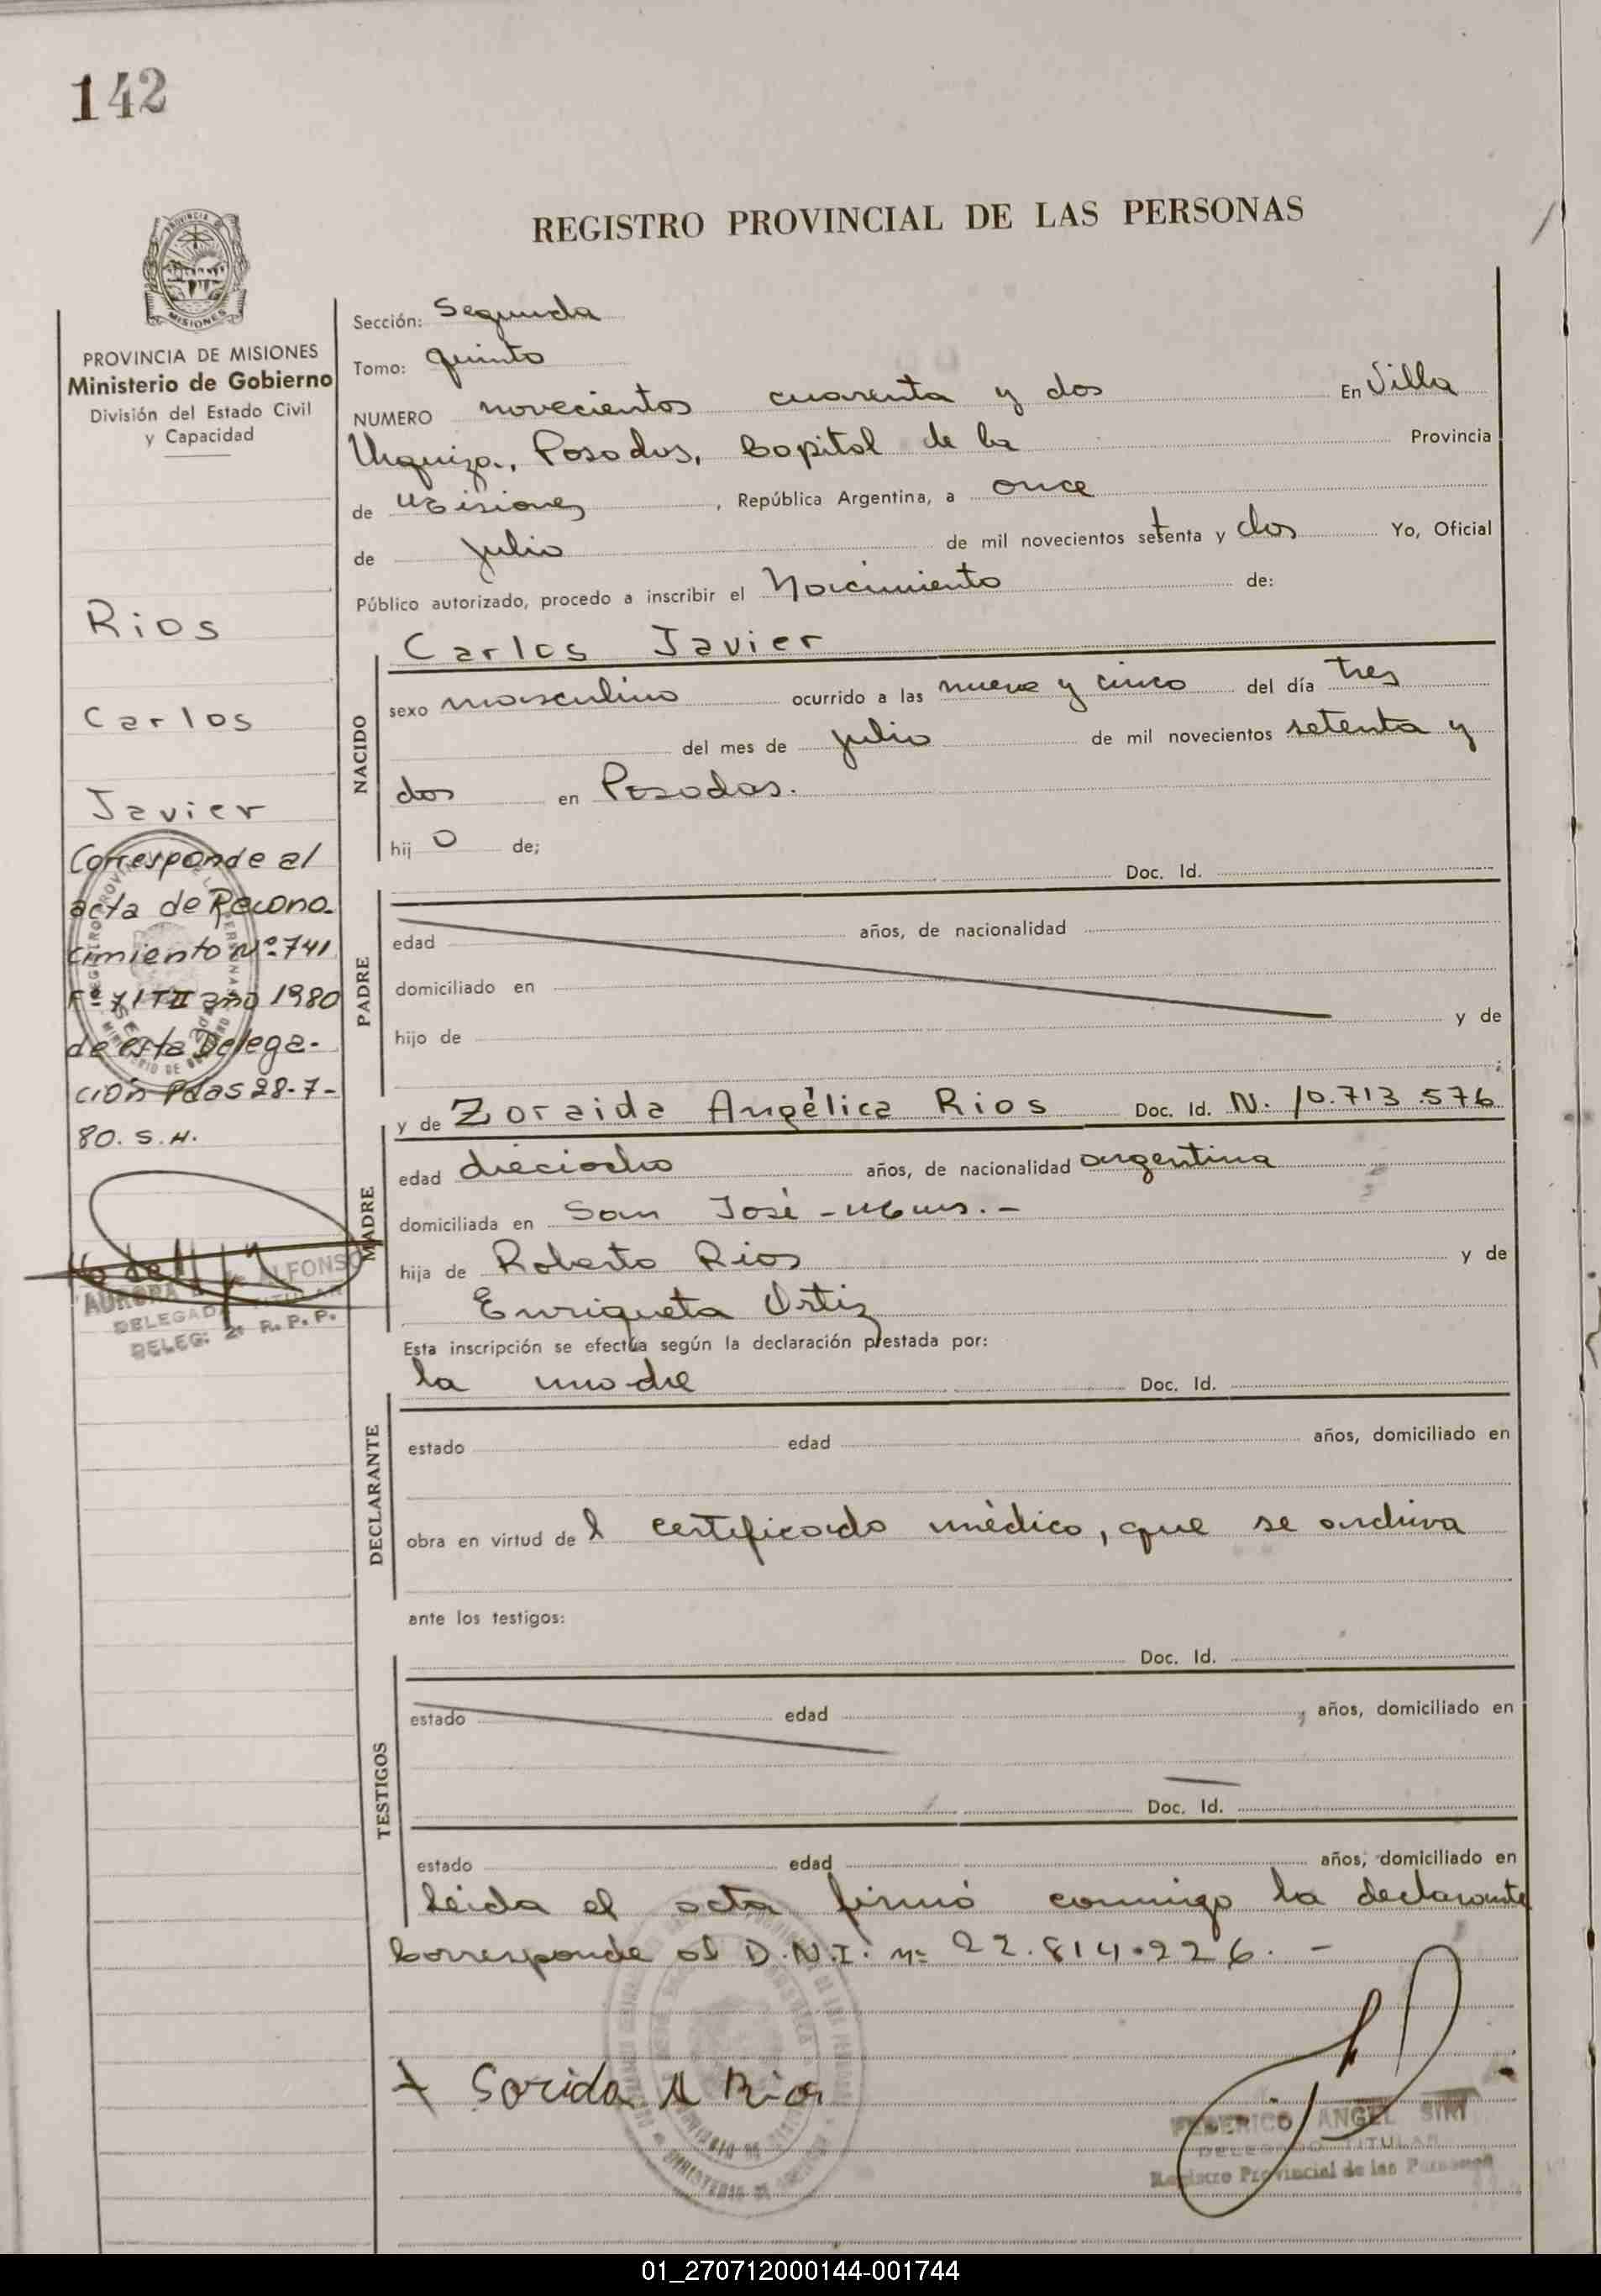 142
REGISTRO PROVINCIAL DE LAS PERSONAS
PROVINCIA DE MISIONES
Ministerio de Gobierno
División del Estado Civil
y Capacidad
Rios
Carlos
Javier
Corresponde al
acta de Recono-
cimiento Nº 741
Fº 71 T II año 1980
de esta Delega-
ción Pdas 28-7-
80. S.H.
ALFONSO
DELEGADA TITULAR
DELEG: 2ª R.P.P.
Sección: Segunda
Tomo: quinto
NUMERO novecientos cuarenta y dos En Villa
Urquiza, Posadas, Capital de la Provincia
de Misiones, República Argentina, a once
de julio de mil novecientos setenta y dos Yo, Oficial
Público autorizado, procedo a inscribir el Nacimiento de:
Carlos Javier
NACIDO
sexo masculino ocurrido a las nueve y cinco del día tres
del mes de julio de mil novecientos setenta y
dos en Posadas.
hij o de;
Doc. Id.
PADRE
edad años, de nacionalidad
domiciliado en
hijo de y de
;
y de Zoraida Angélica Rios Doc. Id. N. 10.713.576
MADRE
edad dieciocho años, de nacionalidad argentina
domiciliada en San José - Mnes. -
hija de Roberto Rios y de
Enriqueta Ortiz
Esta inscripción se efectúa según la declaración prestada por:
la madre Doc. Id.
DECLARANTE
estado edad años, domiciliado en
obra en virtud de l certificado médico, que se archiva
ante los testigos:
Doc. Id.
TESTIGOS
estado edad , años, domiciliado en
Doc. Id.
estado edad años, domiciliado en
Leida el acta firmó conmigo la declarante
Corresponde al D.N.I. nº 22.814.226. -
Sorida A Rios
FEDERICO ANGEL SIRI
DELEGADO TITULAR
Registro Provincial de las Personas
01_270712000144-001744